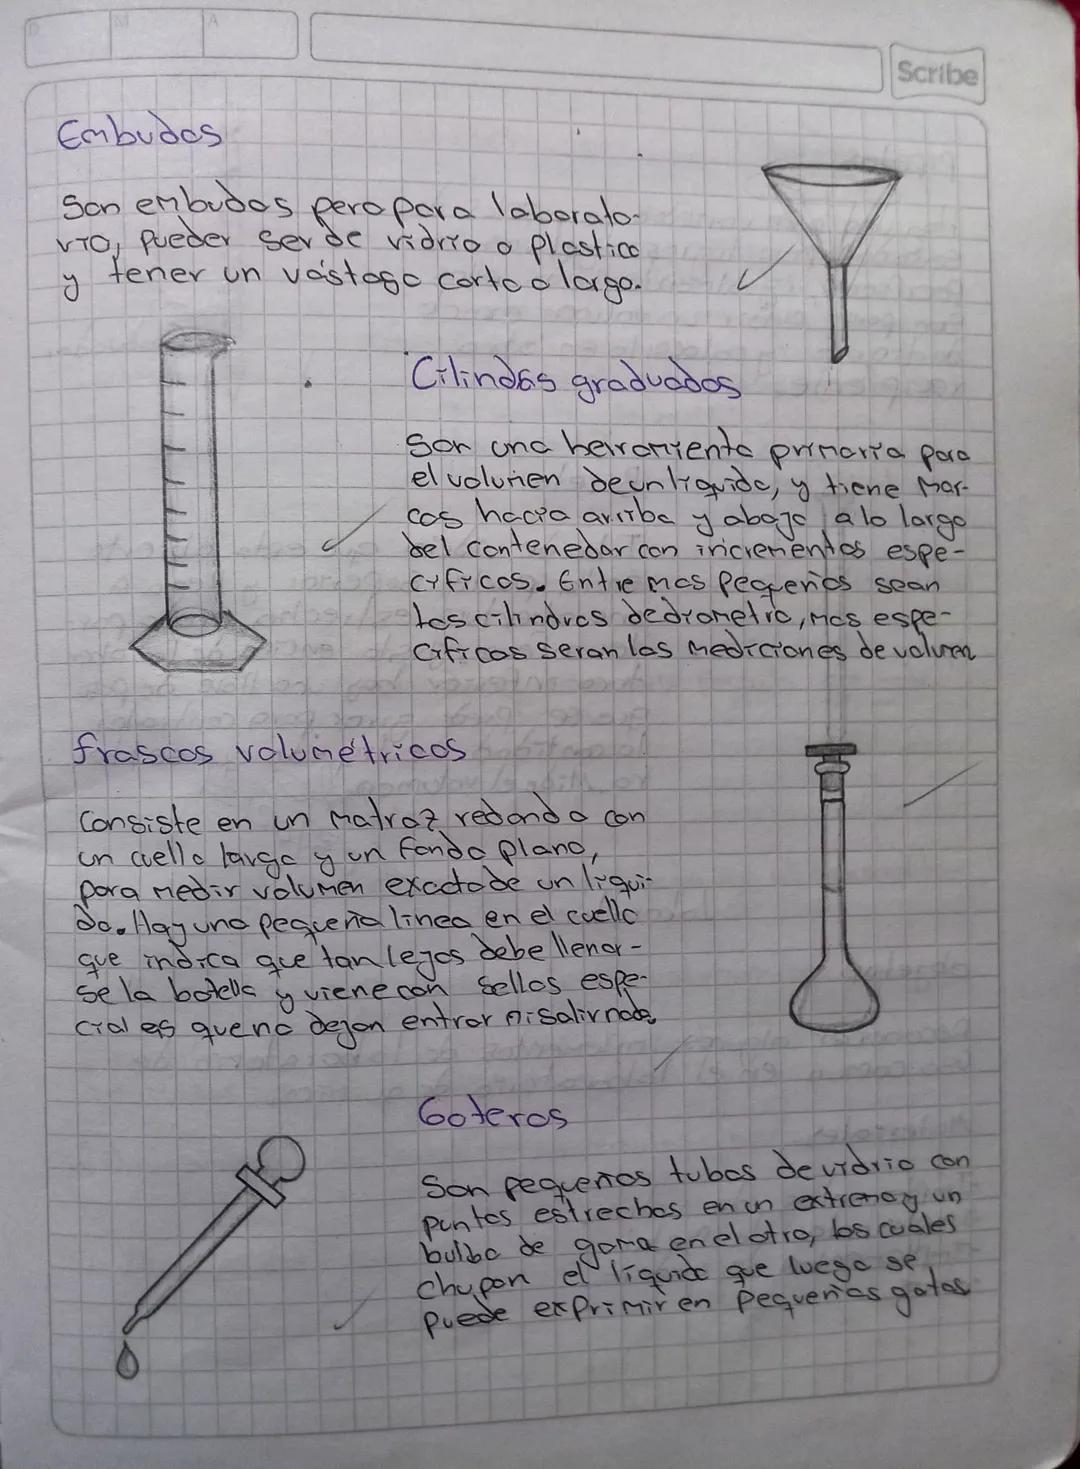 D
M
A
Scribe
Embudos
Son embudos pero para laborato-
rio, pueder ser de vidrio o plastico
y tener un vástago corto o largo.
Cilindros graduados
Son una herramienta primaria para
el volumen de un liquido, y tiene mar-
cas hacia arriba y abajo a lo largo
del contenedor con incrementos espe-
cificos. Entre mas pequeños sean
los cilindros de diametro, mas espe-
cificas seran las mediciones de volumen
frascos volumétricos
Consiste en un matraz redondo con
un cuello largo y un fondo plano,
para medir volumen exacto de un liqui-
do. Hay una pequeña linea en el cuello
que indica que tan lejos debe llenar-
se la botella y viene con sellos espe-
ciales que no dejan entrar ni salir nada.
Goteros
Son pequeños tubos de vidrio con
puntas estrechas en un extremo y un
bulbo de goma en el otro, los cuales
chupan el líquido que luego se
puede exprimir en pequeñas gotas